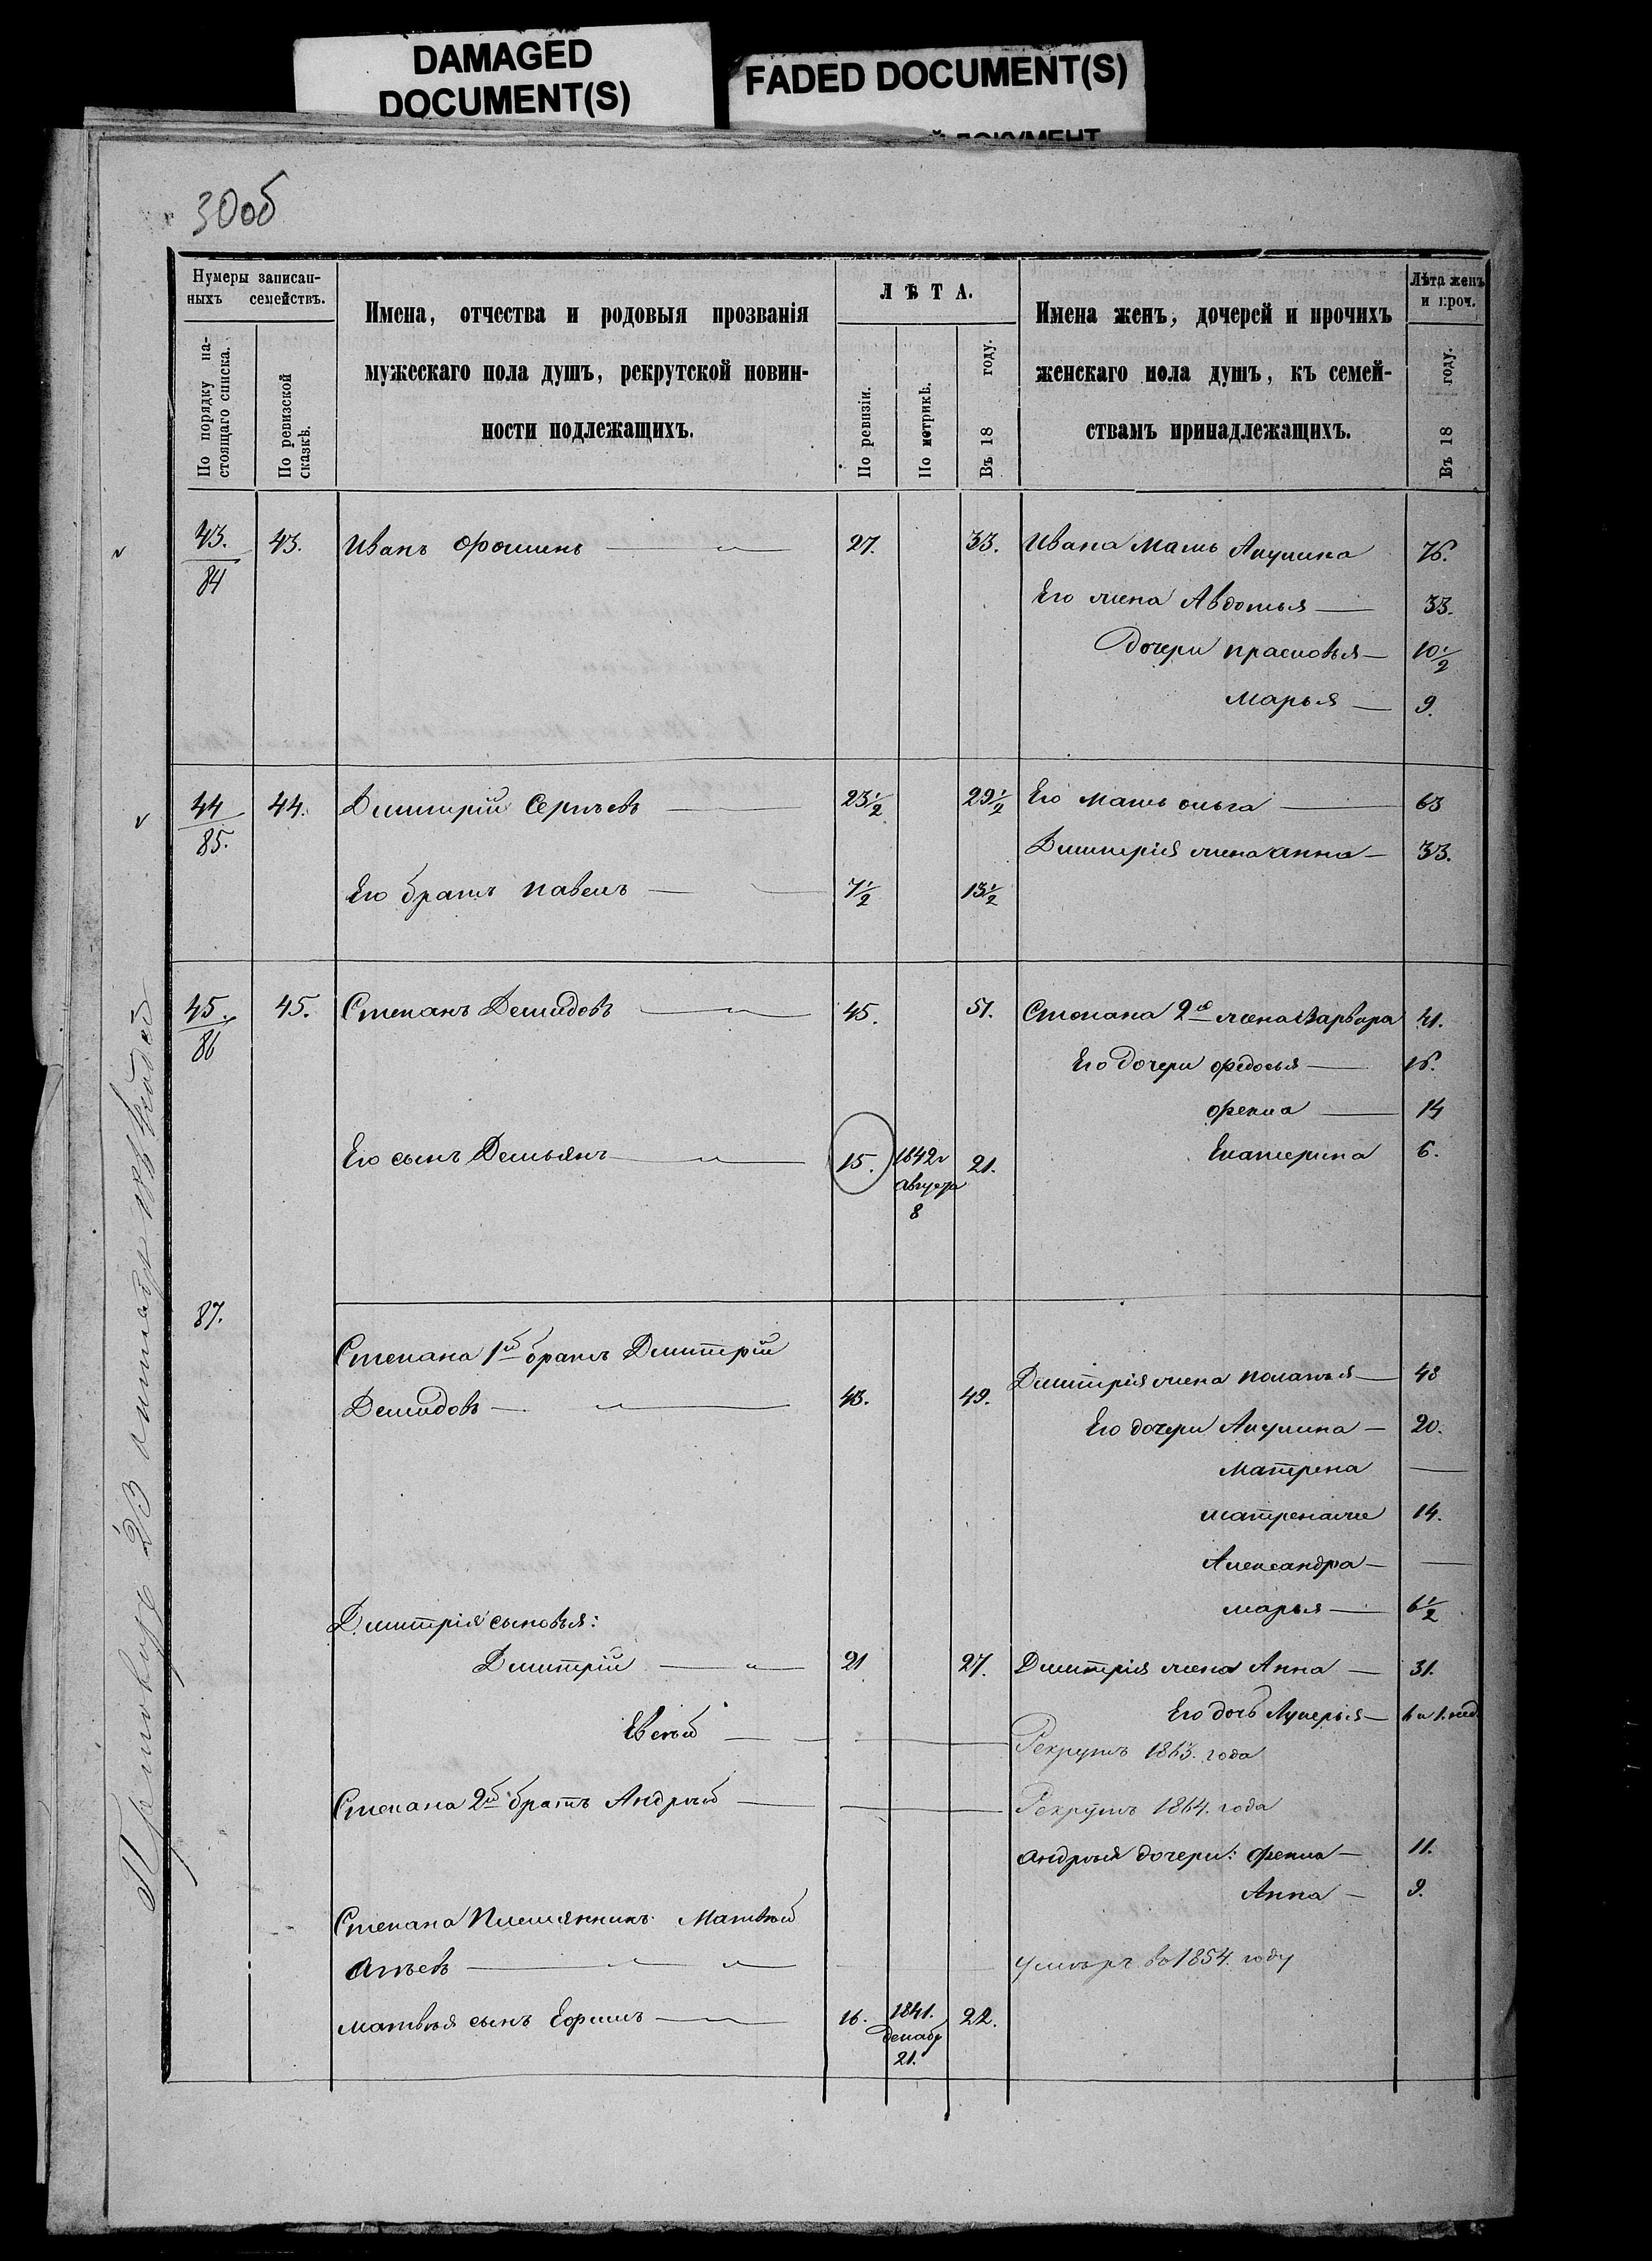 DAMAGED
DOCUMENT(S)
FADED DOCUMENT(S)
30об
Нумеры записан-
ныхъ семействъ.
По порядку на-
стоящаго списка.
По ревизской
сказкѣ.
Имена, отчества и родовыя прозванія
мужескаго пола душъ, рекрутской повин-
ности подлежащихъ.
ЛѢТА.
По ревизіи.
По метрикѣ.
Въ 18 году.
Имена женъ, дочерей и прочихъ
женскаго пола душъ, къ семей-
ствамъ принадлежащихъ.
Лѣта женъ
и проч.
Въ 18 году.
43. 43. Иванъ Фоминъ — 27. 33. Ивана мать Акулина 76.
84
Его жена Авдотья — 33.
Дочери Прасковья — 10 1/2
Марья — 9.
44 44. Дмитрій Сергѣевъ — 23 1/2 29 1/2 Его мать Ольга — 63
85.
Дмитрія жена Анна — 33.
Его братъ Павелъ — 7 1/2 13 1/2
45. 45. Степанъ Демидовъ — 45. 51. Степана 2я жена Варвара 41.
86
Его дочери Федосья — 16.
Фекла — 14
Его сынъ Демьянъ — 15. 1842 21. Екатерина 6.
августа
8
87.
Степана 1й братъ Дмитрій
Демидовъ — 43. 49. Дмитрія жена Поланья — 48
Его дочери Акулина — 20.
Матрена —
Матрена же 14.
Александра —
Марья — 6 1/2
Дмитрія сыновья:
Дмитрій — 21 27. Дмитрія жена Анна — 31.
Его дочь Лукерья — 6 и 1. нед.
Евсѣй — Рекрутъ 1863. года
Степана 2й братъ Андрей — Рекрутъ 1864. года
Андрея дочери: Фекла — 11.
Анна — 9.
Степана племянникъ Матвѣй
— умеръ въ 1854. году
Матвѣя сынъ Ефимъ — 16. 1841. 22.
декабр
21.